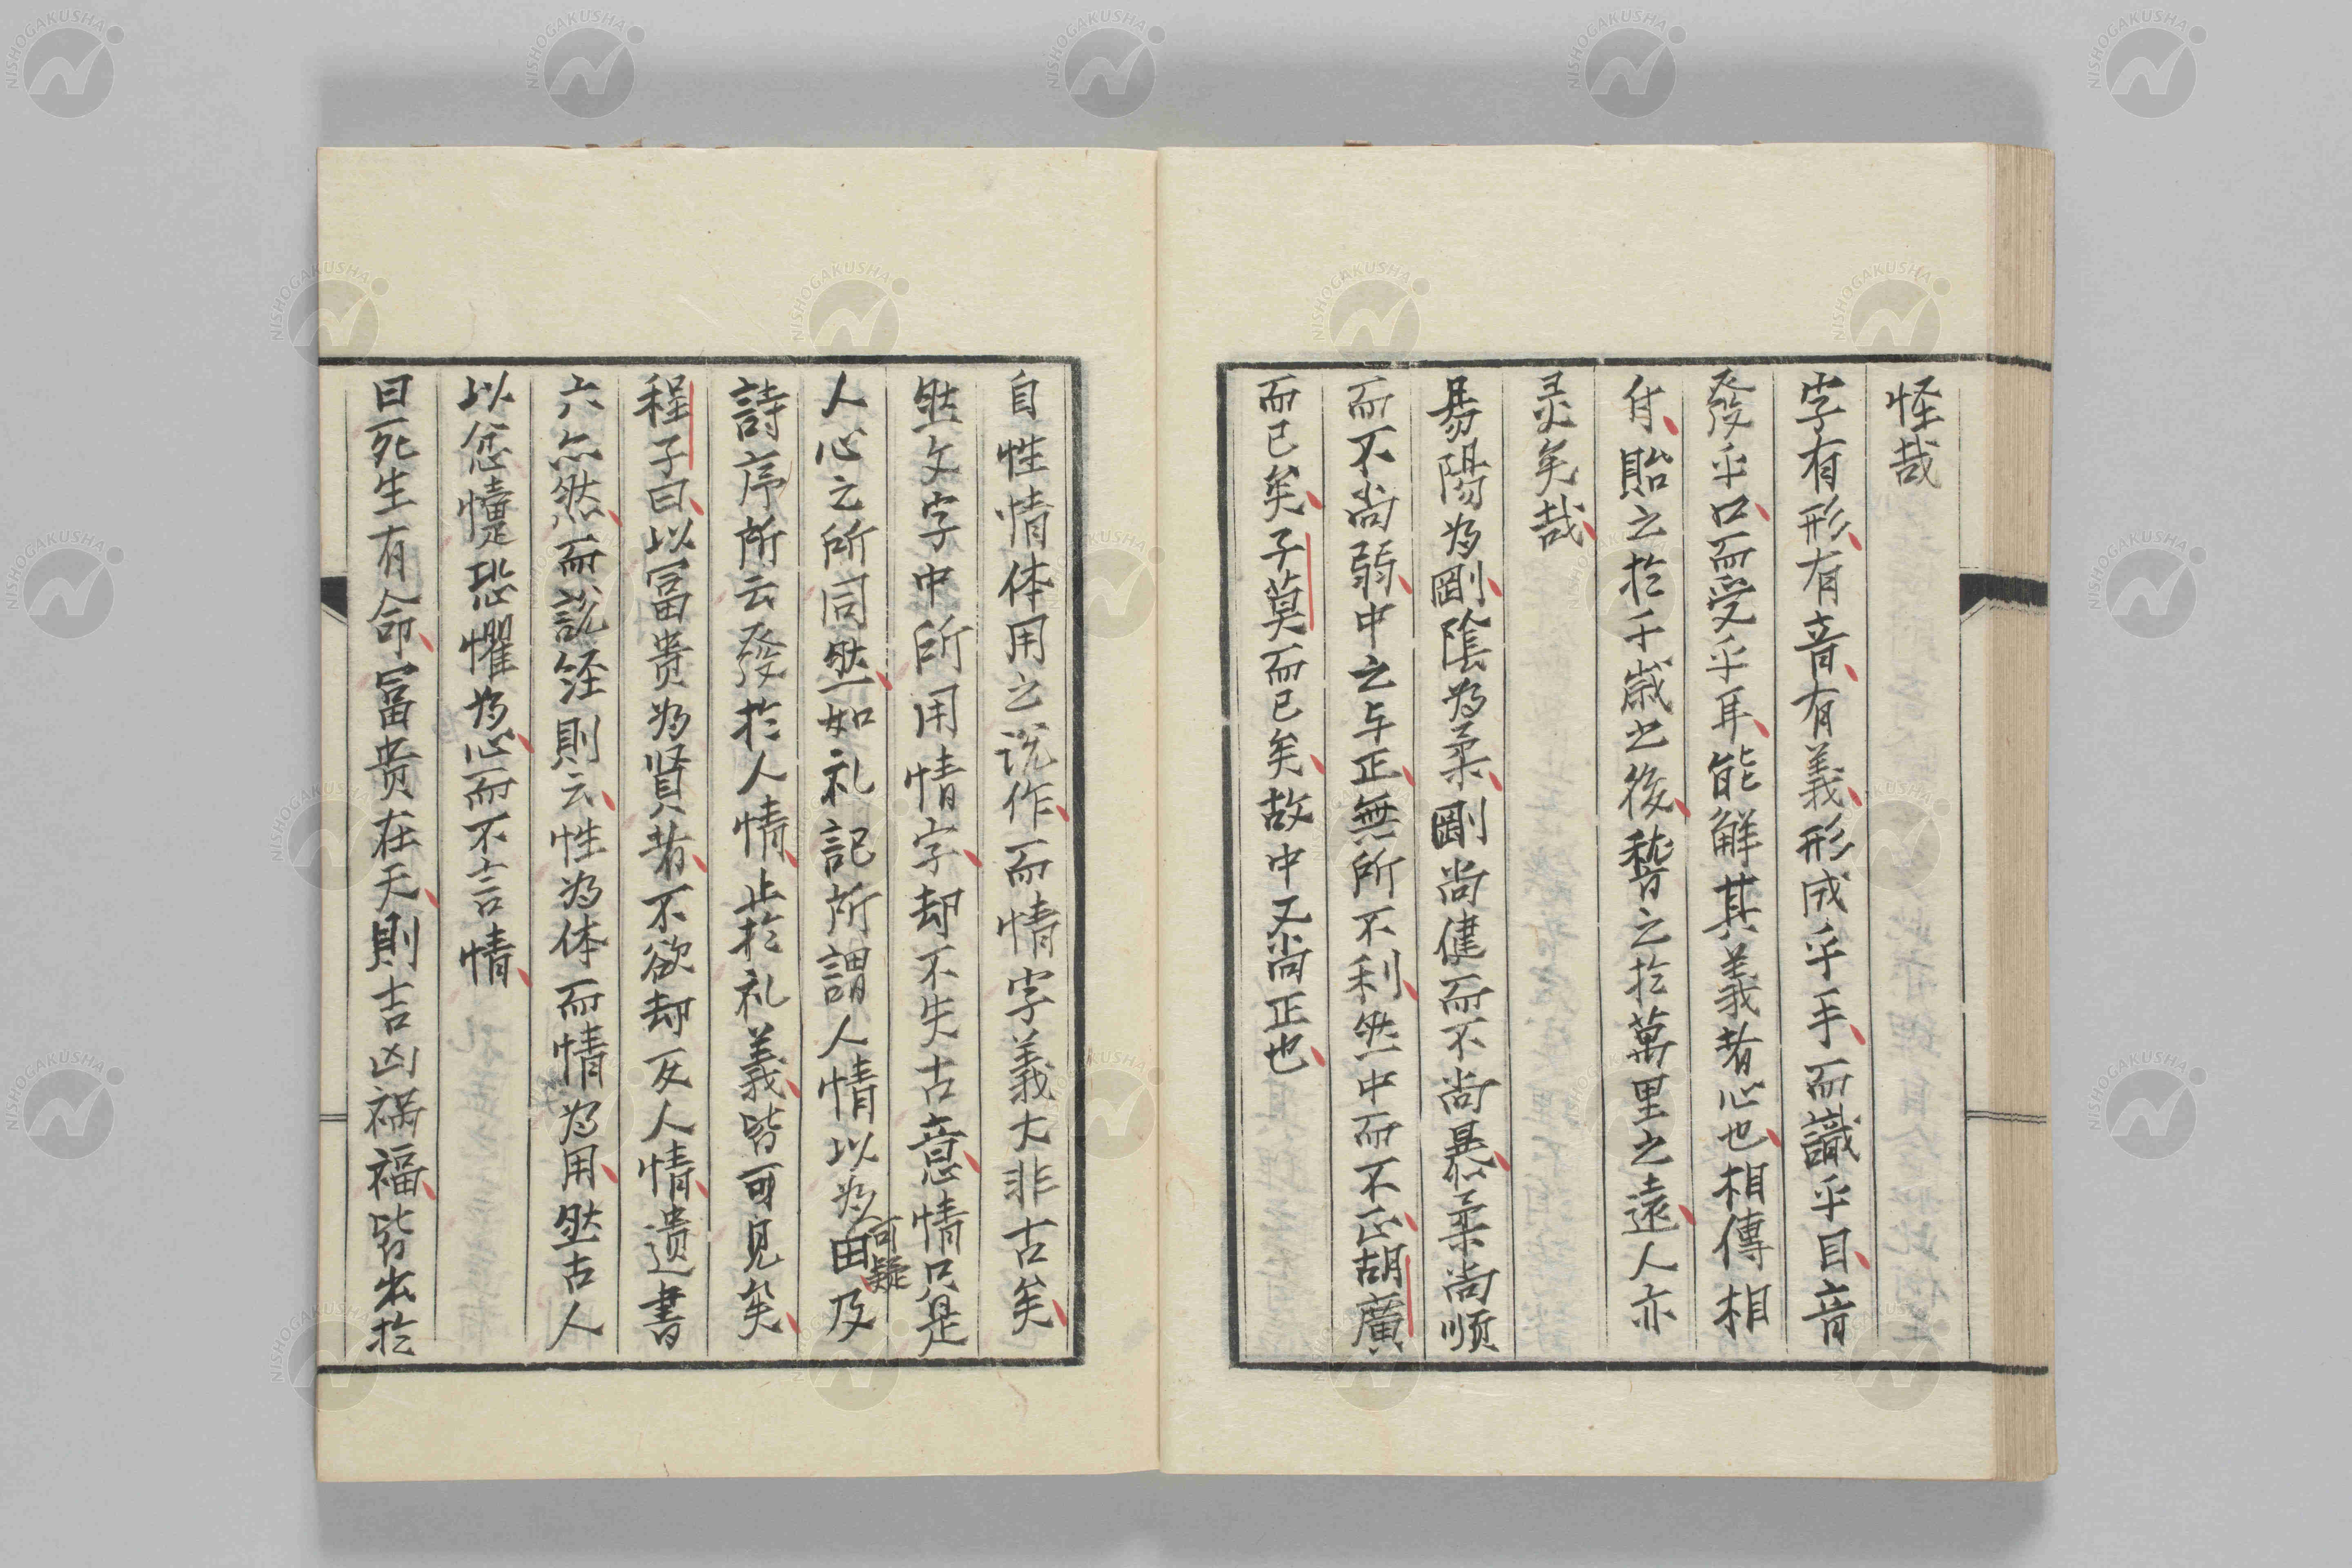 怪哉
字有形有音有義形成乎手而識乎目音
發乎口而受乎耳能解其義者心也相傳相
付貽之於千歳之後稽之於萬里之遠人亦
灵矣哉
易陽為剛陰為柔剛尚健而不尚愚柔尚順
而不尚弱中之与正無所不利然中而不正胡廣
而已矣子莫而已矣故中又尚正也
自性情体用之説作而情字義大非古矣
然文字中所用情字却不失古意情只是
人心之所同然如礼記所謂人情以為田及
可疑
詩序所云發於人情止於礼義皆可見矣
程子曰以冨貴為賢者不欲却反人情遺書
六亦然而説経則云性為体而情為用然古人
以忿懥恐懼為心而不言情
曰死生有命冨貴在天則吉凶禍福皆出於
NISHOGAKUSHA